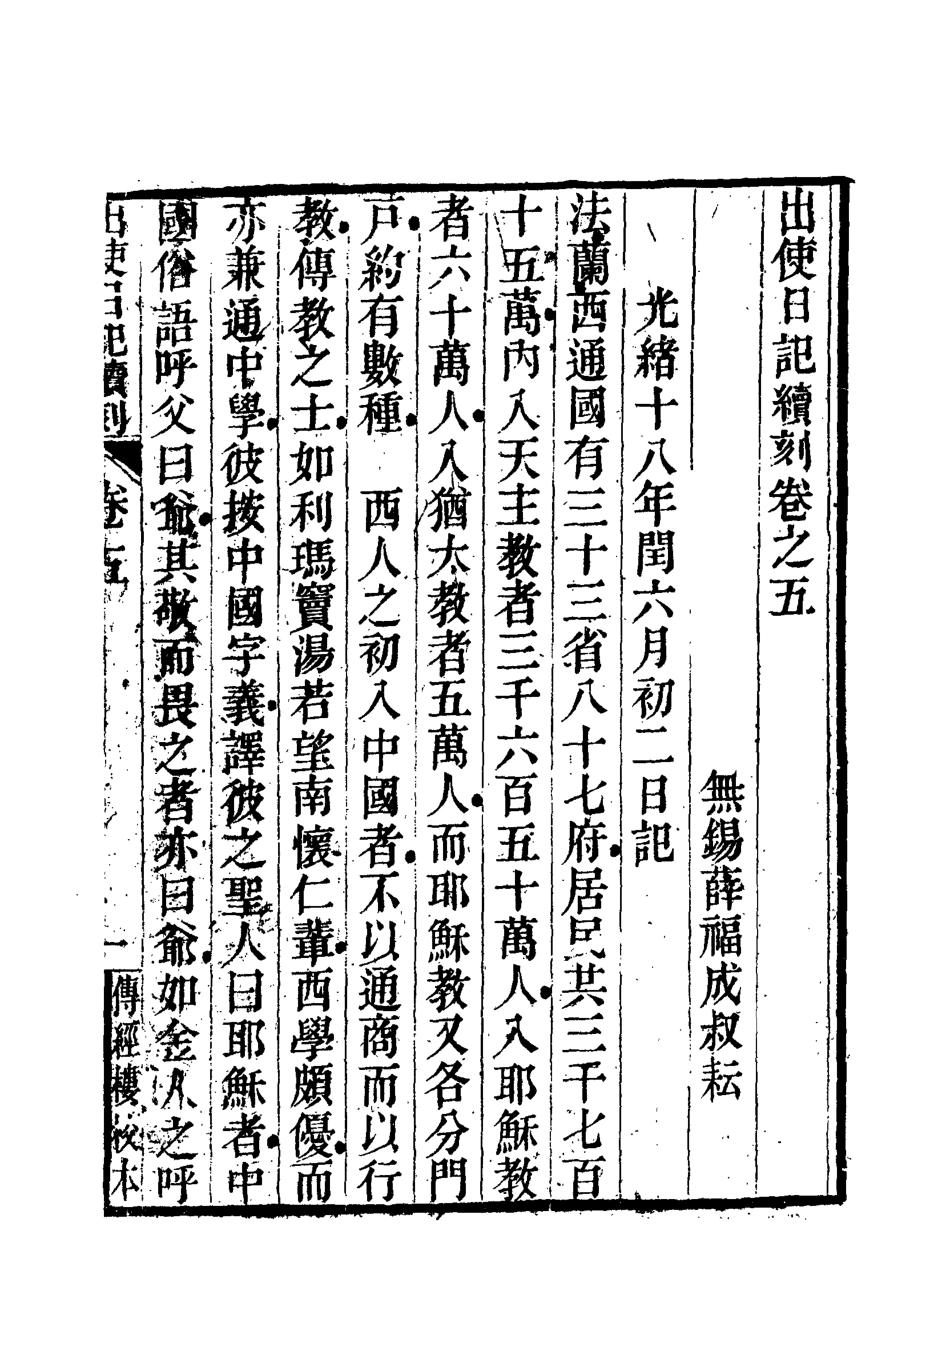 出使日記續刻卷之五
無錫薛福成叔耘
光緒十八年閏六月初二日記
法蘭西通國有三十三省八十七府居民共三千七百
十五萬內入天主教者三千六百五十萬人入耶穌教
者六十萬人入猶太教者五萬人而耶穌教又各分門
戶約有數種　西人之初入中國者不以通商而以行
教傳教之士如利瑪竇湯若望南懷仁輩西學頗優而
亦兼通中學彼按中國字義譯彼之聖人曰耶穌者中
國俗語呼父曰爺其敬而畏之者亦曰爺如金人之呼
出使日記續刻　卷五　一　傳經樓校本